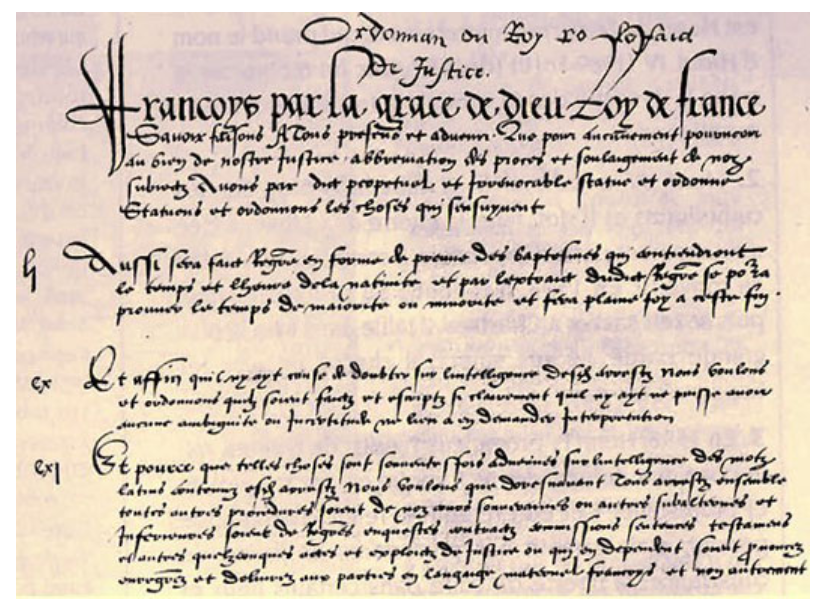 Ordonnan du Roy
De Justice.
Francoys par la grace de dieu Roy de france
Savoir faisons A Tous presens et advenir Que pour aucunement pourveoir
au bien de nostre Justice abbreviation des proces et soulaigement de noz
subiectz Avons par edict perpetuel et Irrevocable statue et ordonne
Statuons et ordonnons les choses qui sensuyvent
lj Aussi sera faict Regre en forme de preuve des baptesmes qui contiendront
le temps et lheure dela nativite et par lextraict dudict Regre se pora
prouver le temps de maiorite ou minorite et fera plaine foy a ceste fin.
cx Et affin quil ny ayt cause de doubter sur lintelligence desdictz arrestz Nous voulons
et ordonnons quilz soient faictz et escriptz si clairement quil ny ayt ne puisse avoir
aucune ambiguite ou Incertitude ne lieu a en demander Interpretation
cxj Et pource que telles choses sont souventesfois advenues sur lintelligence des motz
latins contenuz esdictz arrestz Nous voulons que doresnavant Tous arrestz ensemble
toutes autres procedures soient de noz cours souveraines ou autres subalternes et
Inferieures soient de Regres enquestes contractz commissions sentences testamens
et autres quelzconques actes et exploictz de Justice ou qui en dependent soient prononcez
enregrez et delivrez aux parties en langaige maternel francoys et non autrement